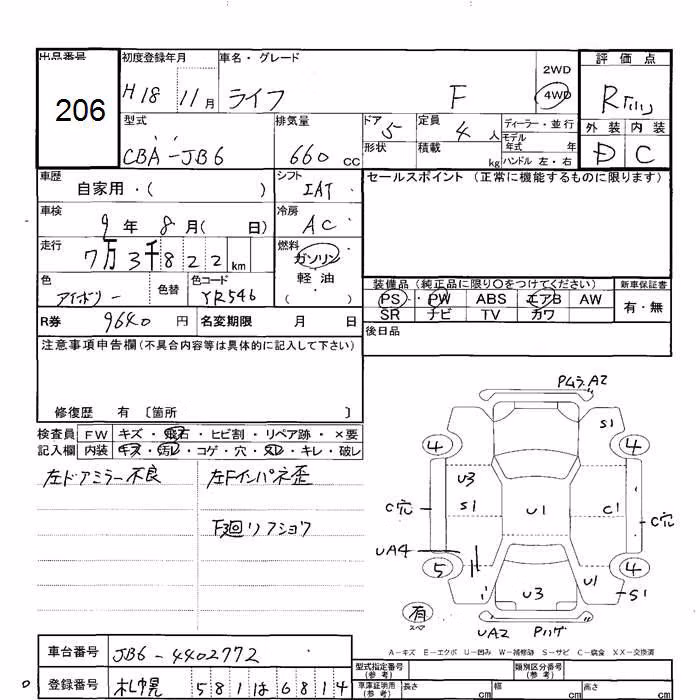 出品番号 初度登録年月 車名・グレード 評価点
206
H18 11月 ライフ F 2WD 4WD R
型式 排気量 ドア 5 定員 4人 ディーラー・並行 外装 内装
CBA-JB6 660cc 形状 積載 kg モデル年式 年 D C
ハンドル 左・右
車歴 シフト セールスポイント (正常に機能するものに限ります)
自家用・( ) IAT
車検 冷房
9年 8月( 日) AC
走行 燃料
7万3千822km ガソリン
色 色替 色コード 軽油
アイボリー YR546 ( )
装備品 (純正品に限り○をつけてください) 新車保証書
PS PW ABS エアB AW 有・無
SR ナビ TV カワ
R券 9640円 名変期限 月 日
後日品
注意事項申告欄(不具合内容等は具体的に記入して下さい)
修復歴 有 〔箇所 〕
検査員 FW キズ・飛石・ヒビ割・リペア跡・×要
記入欄 内装 キズ・汚レ・コゲ・穴・スレ・キレ・破レ
左ドアミラー不良 左Fインパネ歪
F廻リフショウ
PムラA2
S1
4 4
U3
S1 U1 C1
C穴 C穴
UA4
5 4
U3 U1 S1
有
スペア
UA2 Pハゲ
A-キズ E-エクボ U-凹み W-補修跡 S-サビ C-腐食 XX-交換済
車台番号 JB6-4402772
登録番号 札幌 581は6814
型式指定番号(参考) 類別区分番号(参考)
車庫証明用(参考) 長さ cm 幅 cm 高さ cm